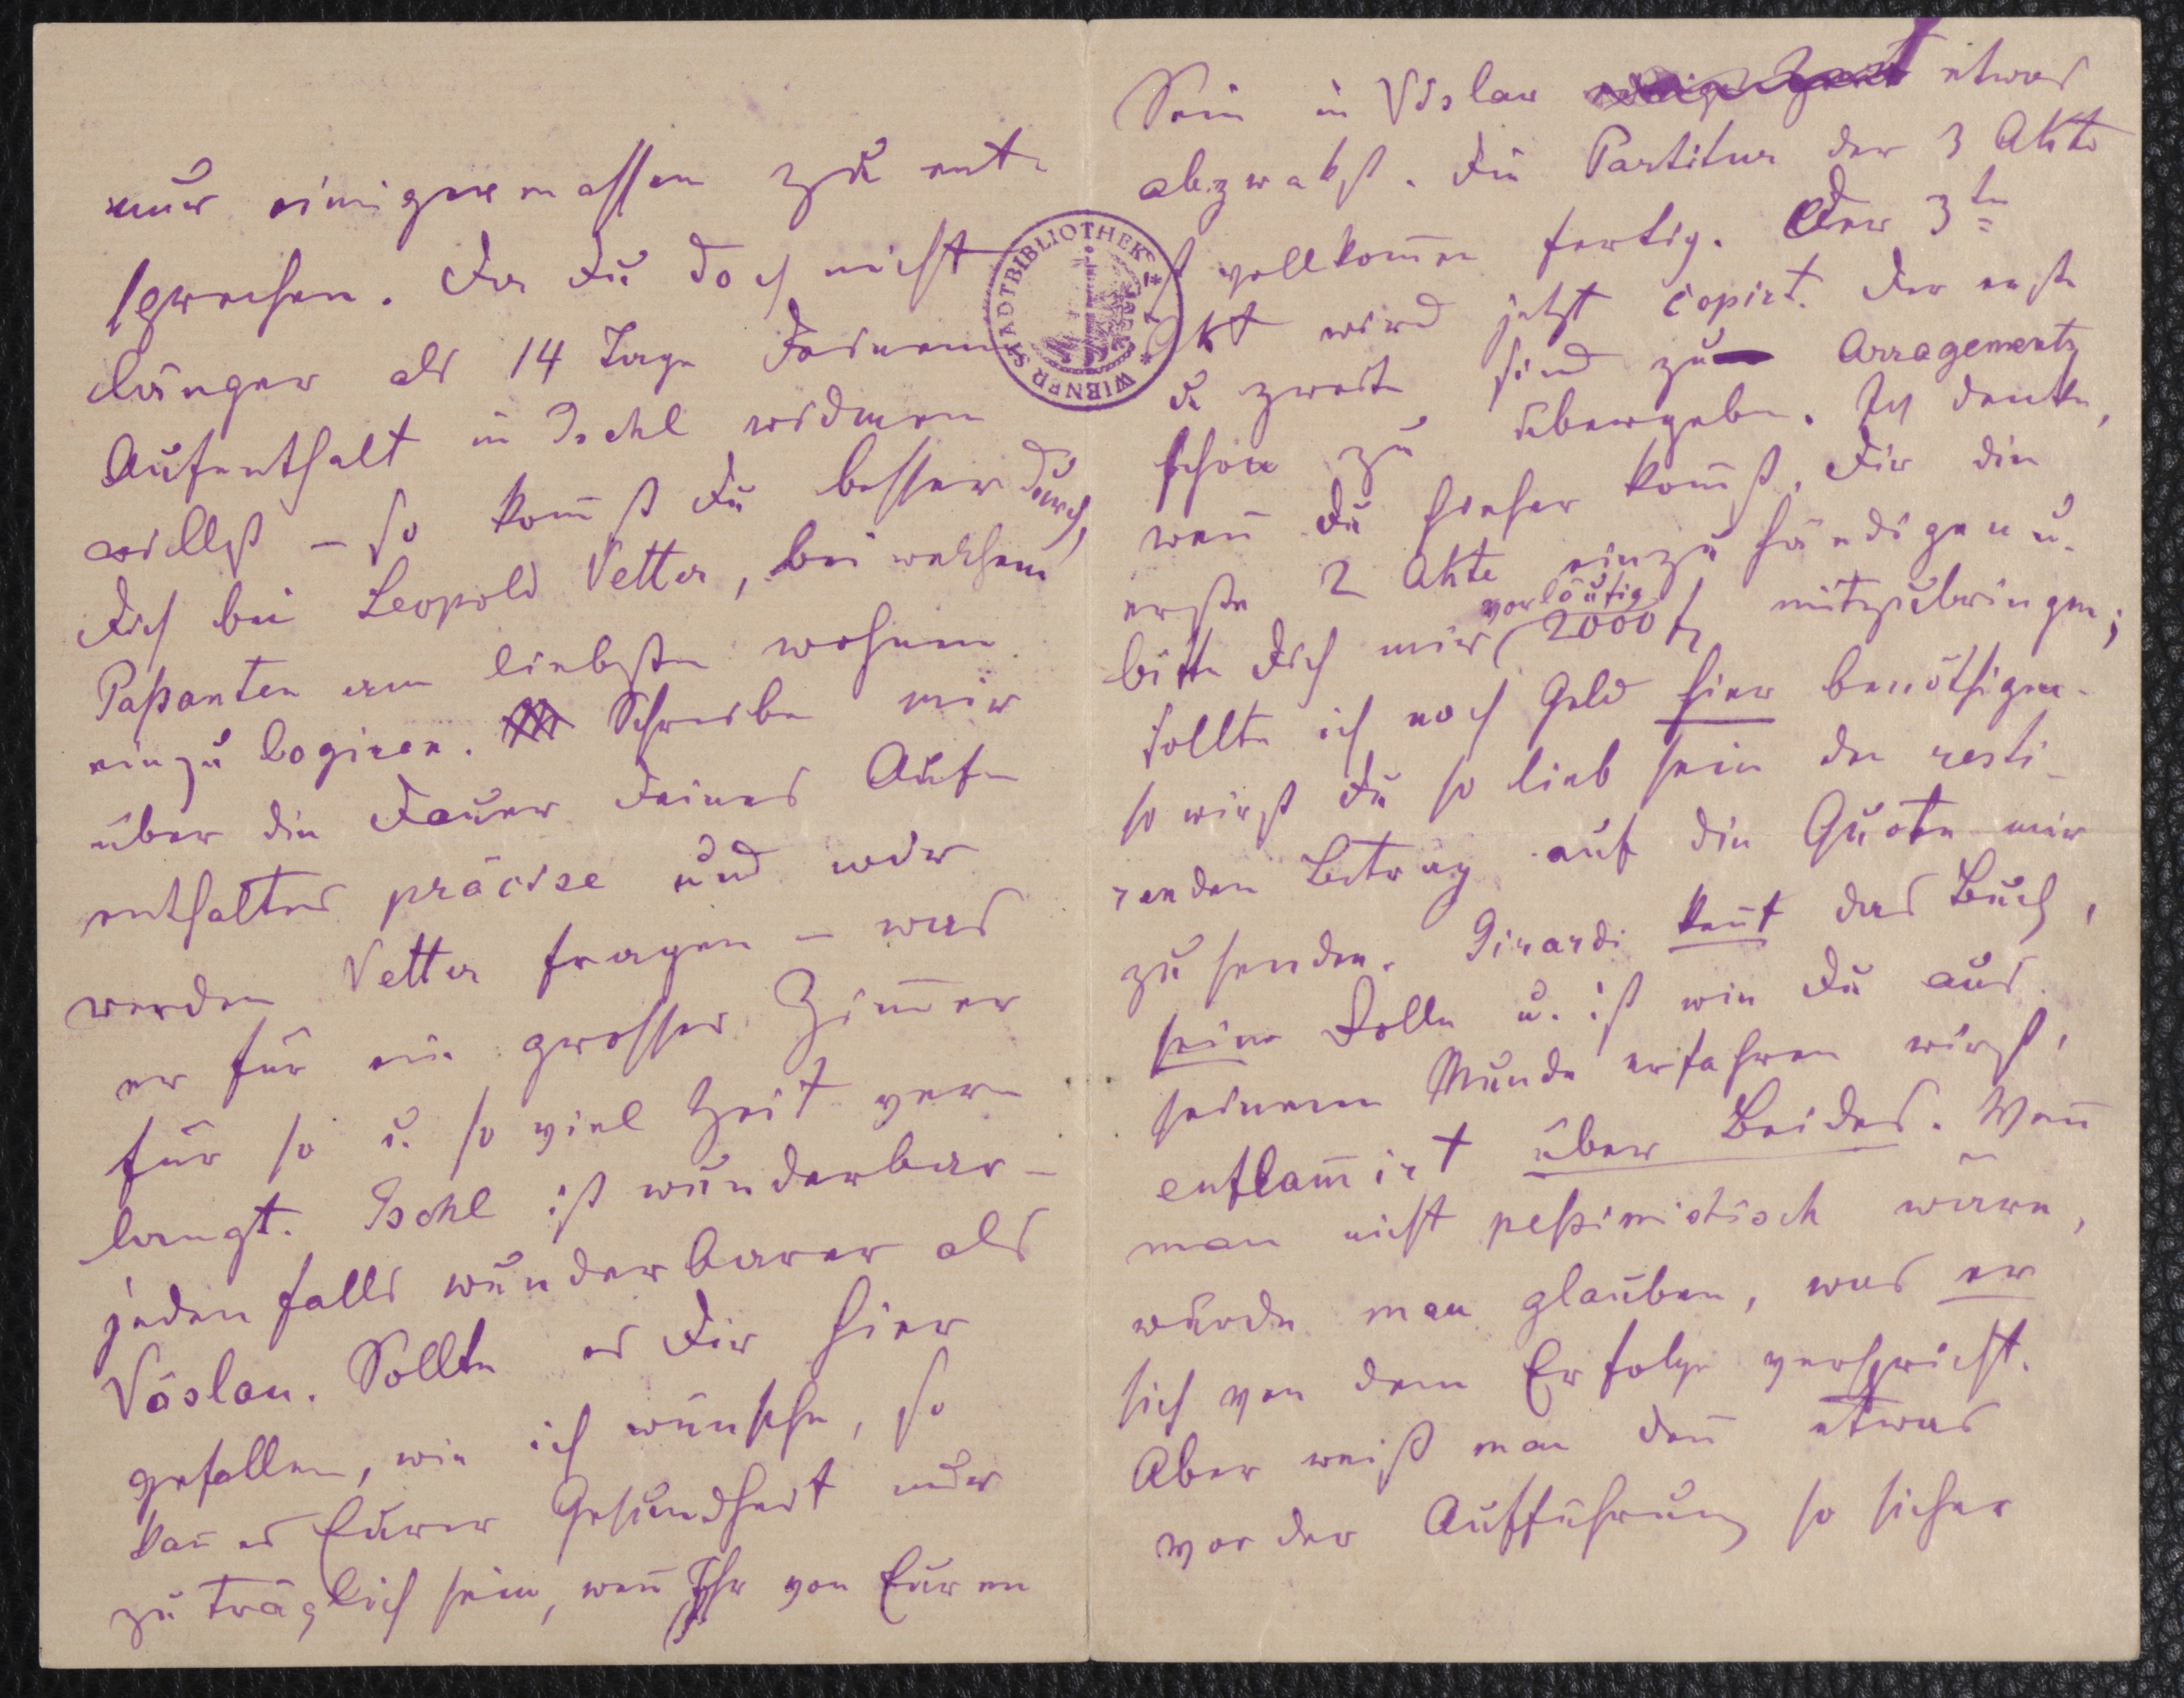 nur einigermassen zu ent-
sprechen. Da Du doch nicht
länger als 14 Tage Deinem
Aufenthalt in Ischl widmen
willst – so kom̄st Du besser durch,
Dich bei Leopold Vetter, bei welchem
Paßanten am liebsten wohnen
einzulogiren. Schreibe mir
über die Dauer Deines Auf-
enthaltes präcise und wir
werden Vetter fragen – was
er für ein grosses Zim̄er
für so u. so viel Zeit ver-
langt. Ischl ist wunderbar –
jedenfalls wunderbarer als
Vöslau. Sollte es Dir hier
gefallen, wie ich wünsche, so
kan̄ es Eurer Gesundheit nur
zuträglich sein, wen̄ Ihr von Euren
Sein in Vöslau etwas
abzwakst. Die Partitur der 3 Akte
ist vollkom̄en fertig. Der 3te
Akt wird jetzt copirt. Der erste
u zweite sind zu Arragements
schon zu übergeben. Ich denke,
wen̄ Du hieher kom̄st, Dir die
ersten 2 Akte einzuhändigen u.
bitte Dich mir vorläufig 2000 fl mitzubringen;
sollte ich noch Geld hier benöthigen
so wirst Du so lieb sein den resti-
renden Betrag auf die Quote mir
zu senden. Girardi ken̄t das Buch,
seine Rolle u. ist wie Du aus
seinem Munde erfahren wirst,
enflam̄irt über Beides. Wen̄
man nicht peßimistisch wäre,
würde man glauben, was er
sich von dem Erfolge verspricht.
Aber weiß man den̄ etwas
vor der Aufführung so sicher
WIENER STADTBIBLIOTHEK